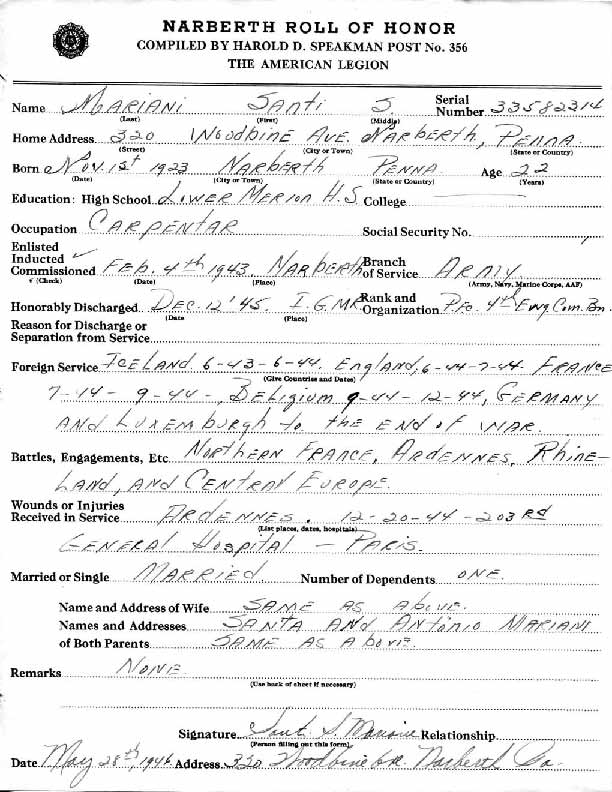 NARBERTH ROLL OF HONOR
COMPILED BY HAROLD D. SPEAKMAN POST No. 356
THE AMERICAN LEGION
Name MARIANI SANTI S. Serial Number 33582314
(Last) (First) (Middle)
Home Address 320 Woodbine Ave. Narberth, Penna.
(Street) (City or Town) (State or Country)
Born Nov. 1st 1923 Narberth Penna Age 22
(Date) (City or Town) (State or Country) (Years)
Education: High School Lower Merion H.S. College
Occupation CARPENTAR Social Security No.
Enlisted
Inducted ✓ Branch
Commissioned Feb. 4th 1943. Narberth of Service ARMY
✓ (Check) (Date) (Place) (Army, Navy, Marine Corps, AAF)
Honorably Discharged Dec. 12 '45. I.G.MR. Rank and Organization Pfc. 4th Eng. Com. Bn.
(Date (Place)
Reason for Discharge or
Separation from Service
Foreign Service ICELAND 6-43-6-44. England, 6-44-7-44. FRANCE
(Give Countries and Dates)
7-44-9-44-, Beligium 9-44-12-44, Germany
and Luxemburgh to the end of war.
Battles, Engagements, Etc. Northern France, Ardennes, Rhine-
land, and Central Europe.
Wounds or Injuries
Received in Service ARDENNES. 12-20-44-203RD
(List places, dates, hospitals)
General Hospital - Paris.
Married or Single MARRIED Number of Dependents ONE.
Name and Address of Wife SAME AS Above.
Names and Addresses SANTA AND ANTONIO MARIANI
of Both Parents SAME AS Above.
Remarks NONE
(Use back of sheet if necessary)
Signature Santi S. Mariani Relationship
(Person filling out this form)
Date May 28th, 1946 Address 320 Woodbine Ave Narberth Pa.